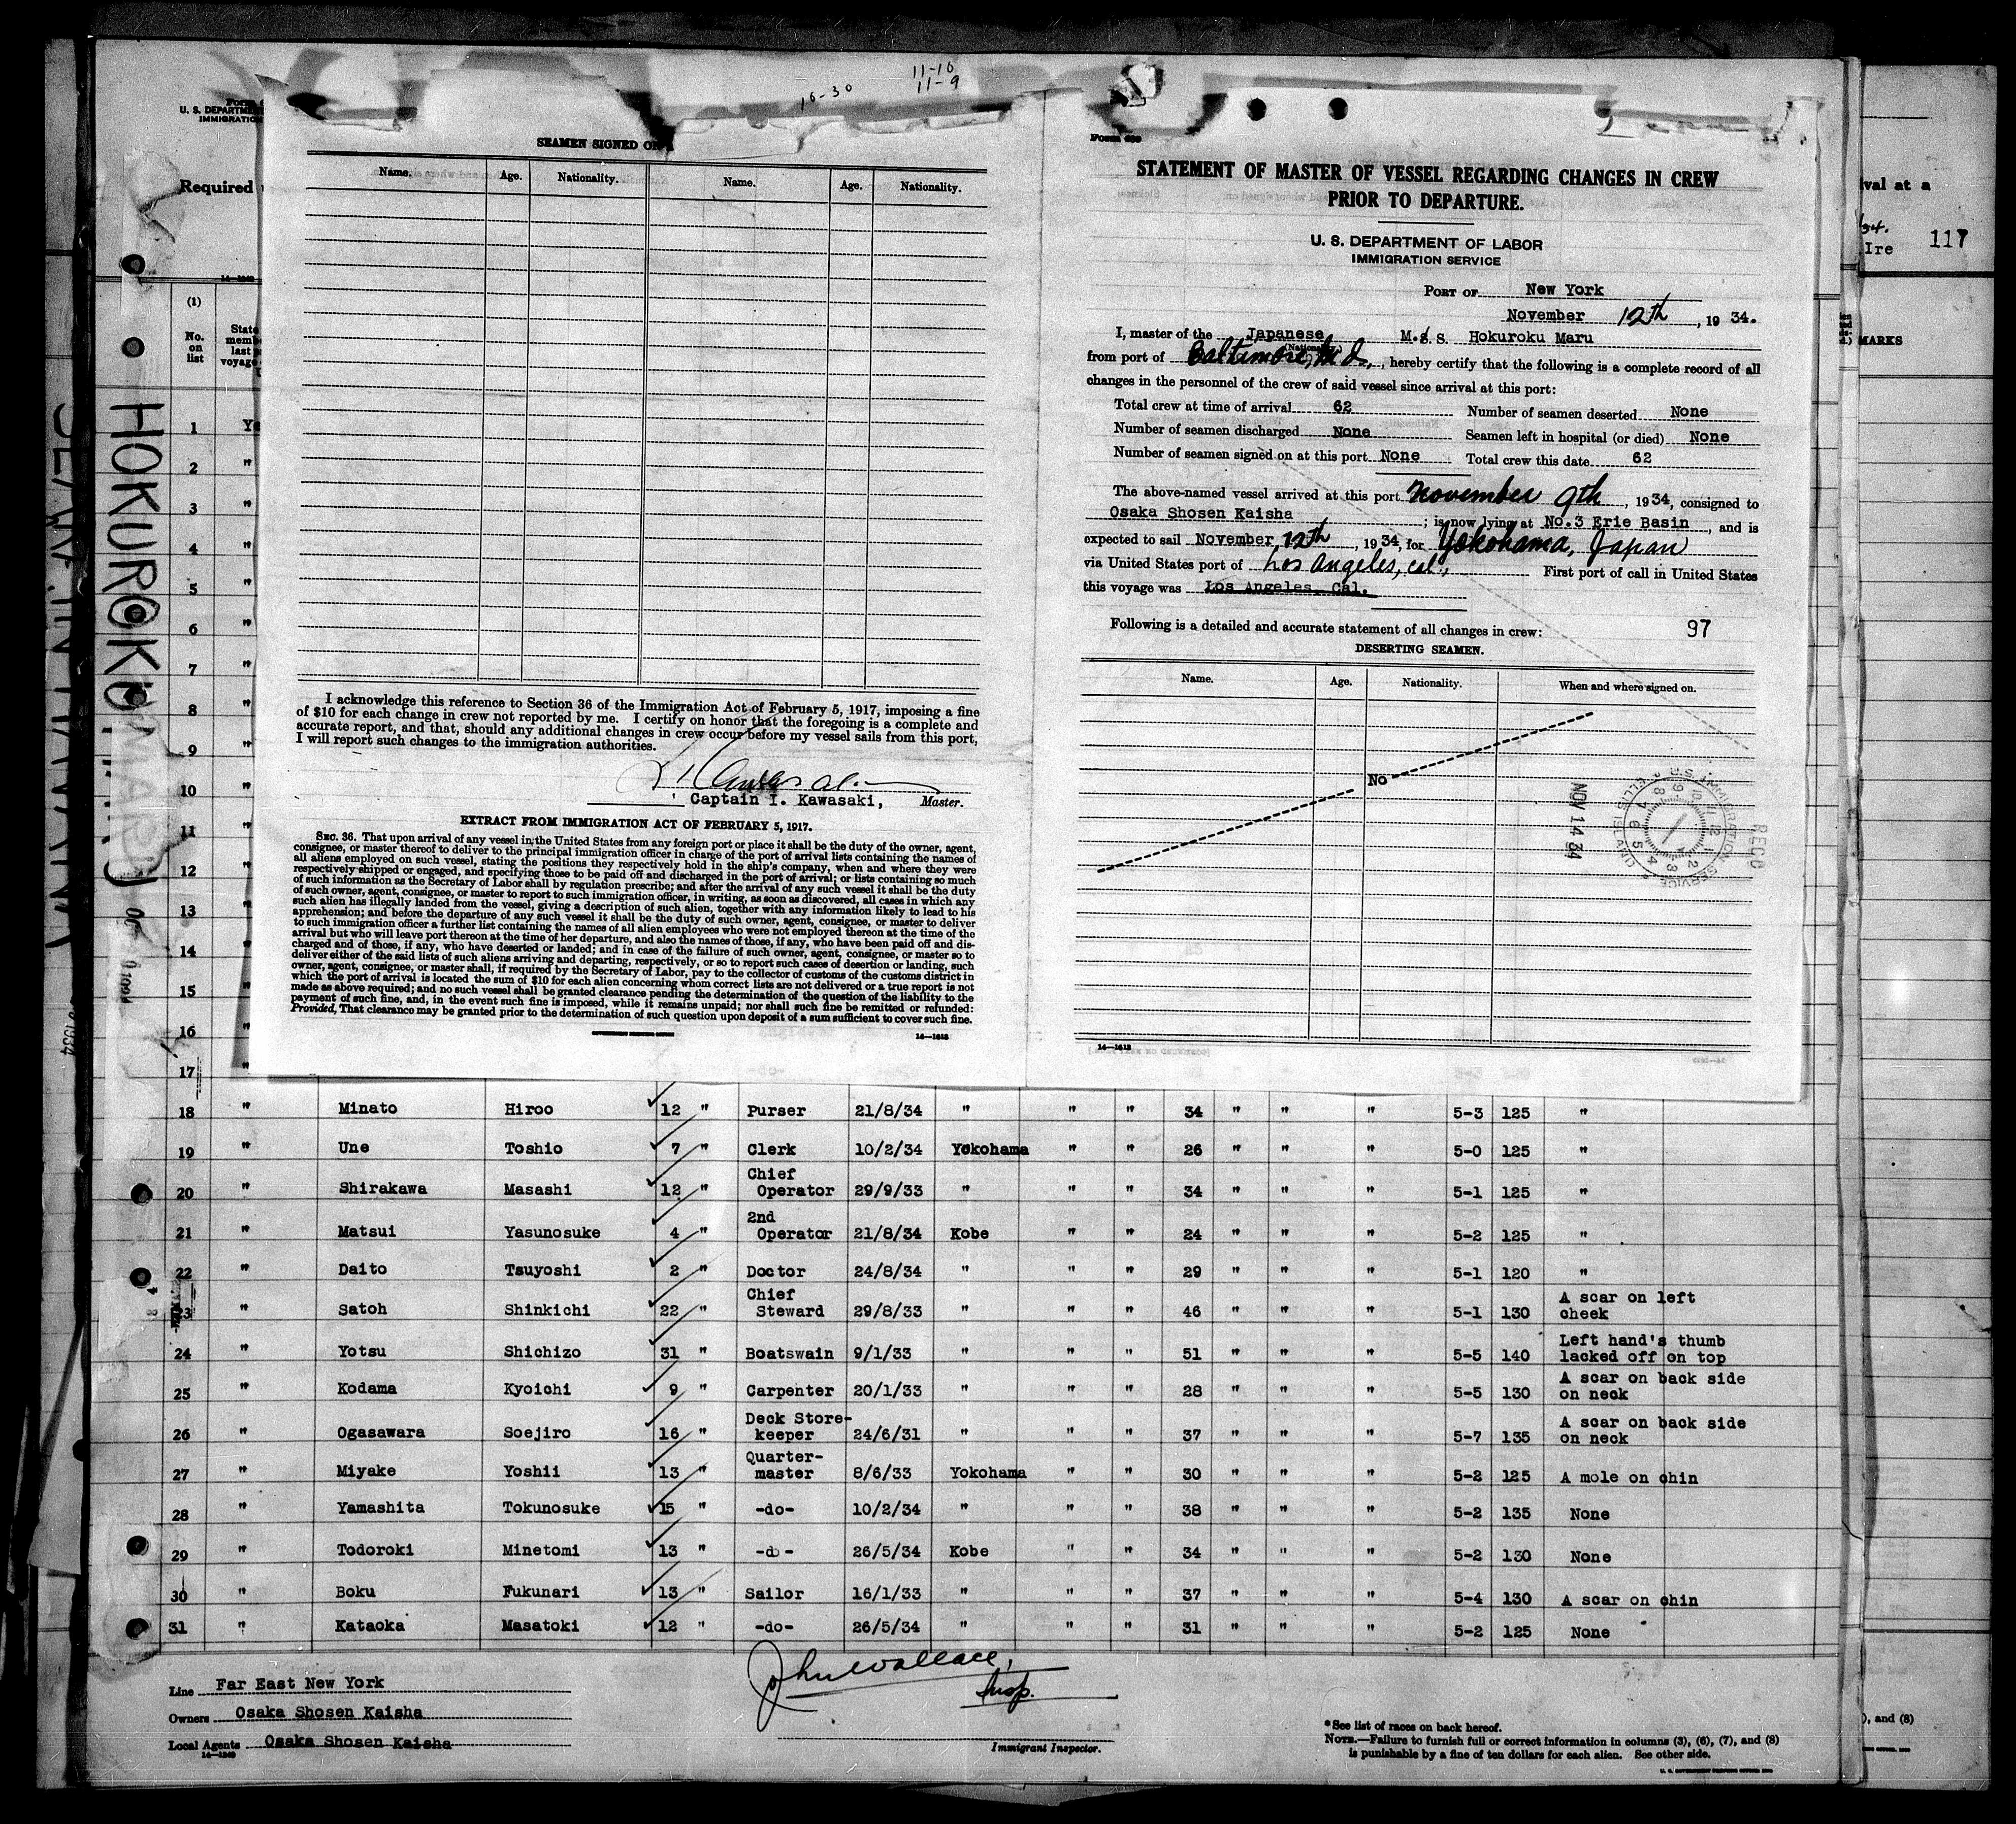 11-10
11-9
10-30
U. S. DEPARTM
IMMIGRATIO
Required
(1)
No.
on
list
State
memb
last
voyage
HOKUROKU MARU
SEAMEN SIGNED ON
Name. Age. Nationality. Name. Age. Nationality.
I acknowledge this reference to Section 36 of the Immigration Act of February 5, 1917, imposing a fine
of $10 for each change in crew not reported by me. I certify on honor that the foregoing is a complete and
accurate report, and that, should any additional changes in crew occur before my vessel sails from this port,
I will report such changes to the immigration authorities.
Captain I. Kawasaki, Master.
EXTRACT FROM IMMIGRATION ACT OF FEBRUARY 5, 1917.
SEC. 36. That upon arrival of any vessel in the United States from any foreign port or place it shall be the duty of the owner, agent,
consignee, or master thereof to deliver to the principal immigration officer in charge of the port of arrival lists containing the names of
all aliens employed on such vessel, stating the positions they respectively hold in the ship's company, when and where they were
respectively shipped or engaged, and specifying those to be paid off and discharged in the port of arrival; or lists containing so much
of such information as the Secretary of Labor shall by regulation prescribe; and after the arrival of any such vessel it shall be the duty
of such owner, agent, consignee, or master to report to such immigration officer, in writing, as soon as discovered, all cases in which any
such alien has illegally landed from the vessel, giving a description of such alien, together with any information likely to lead to his
apprehension; and before the departure of any such vessel it shall be the duty of such owner, agent, consignee, or master to deliver
to such immigration officer a further list containing the names of all alien employees who were not employed thereon at the time of the
arrival but who will leave port thereon at the time of her departure, and also the names of those, if any, who have been paid off and dis-
charged and of those, if any, who have deserted or landed; and in case of the failure of such owner, agent, consignee, or master so to
deliver either of the said lists of such aliens arriving and departing, respectively, or so to report such cases of desertion or landing, such
owner, agent, consignee, or master shall, if required by the Secretary of Labor, pay to the collector of customs of the customs district in
which the port of arrival is located the sum of $10 for each alien concerning whom correct lists are not delivered or a true report is not
made as above required; and no such vessel shall be granted clearance pending the determination of the question of the liability to the
payment of such fine, and, in the event such fine is imposed, while it remains unpaid; nor shall such fine be remitted or refunded:
Provided, That clearance may be granted prior to the determination of such question upon deposit of a sum sufficient to cover such fine.
GOVERNMENT PRINTING OFFICE 14—1613
STATEMENT OF MASTER OF VESSEL REGARDING CHANGES IN CREW
PRIOR TO DEPARTURE.
U. S. DEPARTMENT OF LABOR
IMMIGRATION SERVICE
PORT OF New York
November 12th, 19 34.
I, master of the Japanese M.S. S. Hokuroku Maru
(Nationality)
from port of Baltimore, Md., hereby certify that the following is a complete record of all
changes in the personnel of the crew of said vessel since arrival at this port:
Total crew at time of arrival 62 Number of seamen deserted None
Number of seamen discharged None Seamen left in hospital (or died) None
Number of seamen signed on at this port None Total crew this date 62
The above-named vessel arrived at this port November 9th, 19 34, consigned to
Osaka Shosen Kaisha; is now lying at No.3 Erie Basin, and is
expected to sail November 12th, 19 34, for Yokohama, Japan
via United States port of Los Angeles, Cal., First port of call in United States
this voyage was Los Angeles, Cal.
Following is a detailed and accurate statement of all changes in crew: 97
DESERTING SEAMEN.
Name. Age. Nationality. When and where signed on.
No
NOV 14 34
RECD
14—1613
val at a
Ire 117
MARKS
1
2 "
3 "
4 "
5 "
6 "
7 "
8 "
9 "
10 "
11 "
12 "
13 "
14 "
15 "
16 "
17 "
18 " Minato Hiroo 12 " Purser 21/8/34 " " " 34 " " " 5-3 125 "
19 " Une Toshio 7 " Clerk 10/2/34 Yokohama " " 26 " " " 5-0 125 "
20 " Shirakawa Masashi 12 " Chief Operator 29/9/33 " " " 34 " " " 5-1 125 "
21 " Matsui Yasunosuke 4 " 2nd Operator 21/8/34 Kobe " " 24 " " " 5-2 125 "
22 " Daito Tsuyoshi 2 " Doctor 24/8/34 " " " 29 " " " 5-1 120 "
23 " Satoh Shinkichi 22 " Chief Steward 29/8/33 " " " 46 " " " 5-1 130 A scar on left cheek
24 " Yotsu Shichizo 31 " Boatswain 9/1/33 " " " 51 " " " 5-5 140 Left hand's thumb lacked off on top
25 " Kodama Kyoichi 9 " Carpenter 20/1/33 " " " 28 " " " 5-5 130 A scar on back side on neck
26 " Ogasawara Soejiro 16 " Deck Store-keeper 24/6/31 " " " 37 " " " 5-7 135 A scar on back side on neck
27 " Miyake Yoshii 13 " Quarter-master 8/6/33 Yokohama " " 30 " " " 5-2 125 A mole on chin
28 " Yamashita Tokunosuke 15 " -do- 10/2/34 " " " 38 " " " 5-2 135 None
29 " Todoroki Minetomi 13 " -do- 26/5/34 Kobe " " 34 " " " 5-2 130 None
30 " Boku Fukunari 13 " Sailor 16/1/33 " " " 37 " " " 5-4 130 A scar on chin
31 " Kataoka Masatoki 12 " -do- 26/5/34 " " " 31 " " " 5-2 125 None
Line Far East New York
Owners Osaka Shosen Kaisha
Local Agents Osaka Shosen Kaisha
14—1240
John Wallace,
Insp.
Immigrant Inspector.
*See list of races on back hereof.
NOTE.—Failure to furnish full or correct information in columns (3), (6), (7), and (8)
is punishable by a fine of ten dollars for each alien. See other side.
), and (8)